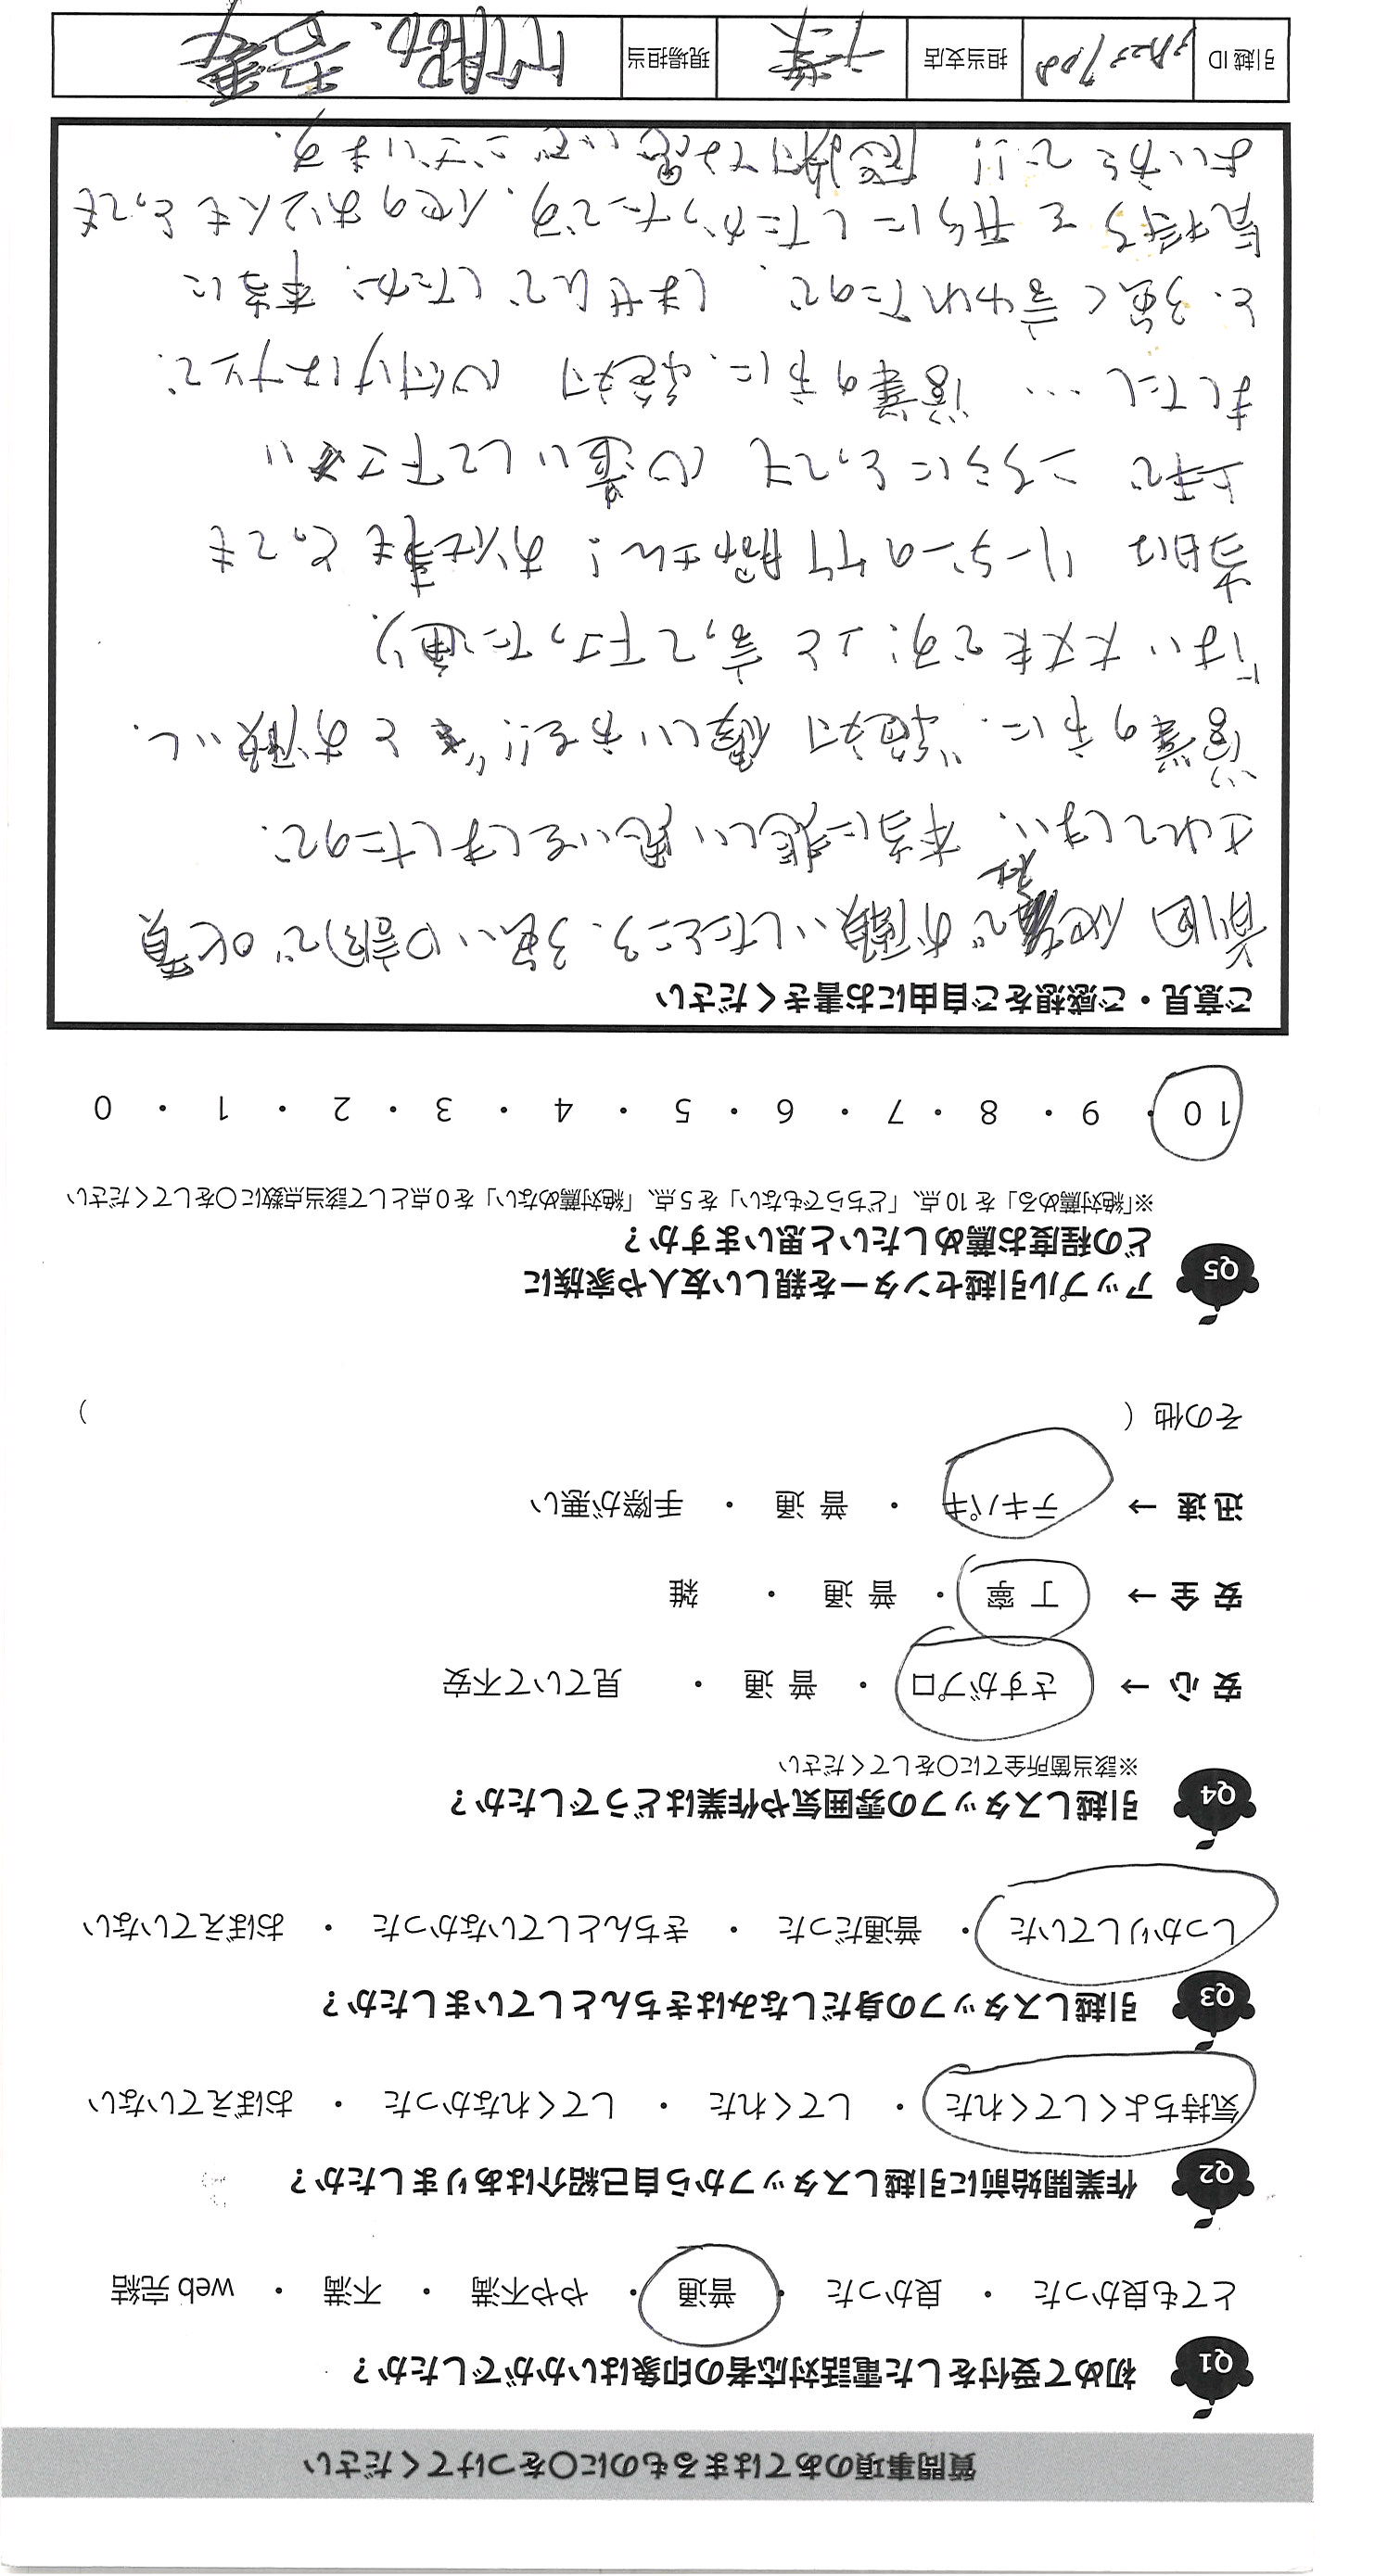 質問事項のあてはまるものに○をつけてください
Q1 初めて受付をした電話対応者の印象はいかがでしたか？
とても良かった ・ 良かった ・ 普通 ・ やや不満 ・ 不満 ・ web 完結
Q2 作業開始前に引越しスタッフから自己紹介はありましたか？
気持ちよくしてくれた ・ してくれた ・ してくれなかった ・ おぼえていない
Q3 引越しスタッフの身だしなみはきちんとしていましたか？
しっかりしていた ・ 普通だった ・ きちんとしていなかった ・ おぼえていない
Q4 引越しスタッフの雰囲気や作業はどうでしたか？
※該当箇所全てに○をしてください
安心 → さすがプロ ・ 普通 ・ 見ていて不安
安全 → 丁寧 ・ 普通 ・ 雑
迅速 → テキパキ ・ 普通 ・ 手際が悪い
その他（ ）
Q5 アップル引越センターを親しい友人や家族に
どの程度お薦めしたいと思いますか？
※「絶対薦める」を 10 点、「どちらでもない」を 5 点、「絶対薦めない」を 0 点として該当点数に○をしてください
10 ・ 9 ・ 8 ・ 7 ・ 6 ・ 5 ・ 4 ・ 3 ・ 2 ・ 1 ・ 0
ご意見・ご感想をご自由にお書きください
前回 他社でお願いしたところ、強い口調で叱責
されてしまい、本当に悲しい思いをしましたので、
営業の方に、"絶対 優しい方を!!" とお願いし、
「はい大丈夫です!」と言って下さった通り、
当日は リーダーの竹服さん! お仕事もとっても
上手で こちらにとっても 心遣いして下さい
ましたし… 営業の方に、絶対 心付けはナシで、
と、強く言われたので、しませんでしたが、本当に
気持ちを 形にしたかったです。他のお2人もとっても
よい方で!! 感謝でございます。
引越 ID 担当支店 千葉 現場担当